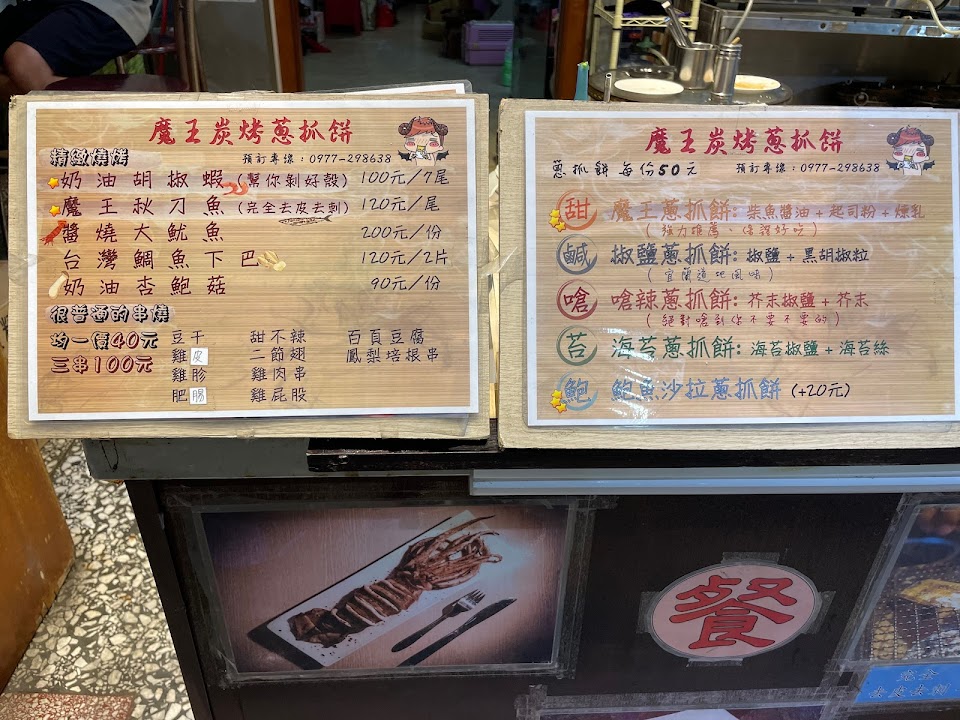 魔王炭烤蔥抓餅
精緻燒烤
預訂專線:0977-298638
奶油胡椒蝦(幫你剝好殼) 100元/7尾
魔王秋刀魚(完全去皮去刺) 120元/尾
醬燒大魷魚 200元/份
台灣鯛魚下巴 120元/2片
奶油杏鮑菇 90元/份
很普通的串燒
均一價40元
三串100元
豆干 甜不辣 百頁豆腐
雞皮 二節翅 鳳梨培根串
雞胗 雞肉串
肥腸 雞屁股
魔王炭烤蔥抓餅
蔥抓餅 每份50元 預訂專線:0977-298638
甜 魔王蔥抓餅:柴魚醬油+起司粉+煉乳
(強力推薦、保證好吃)
鹹 椒鹽蔥抓餅:椒鹽+黑胡椒粒
(宜蘭道地風味)
嗆 嗆辣蔥抓餅:芥末椒鹽+芥末
(絕對嗆到你不要不要的)
苔 海苔蔥抓餅:海苔椒鹽+海苔絲
鮑 鮑魚沙拉蔥抓餅 (+20元)
餐